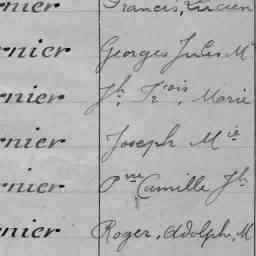 rnier Francis, Lucien
rnier Georges Jules M
rnier Jh. Frois, Marie
rnier Joseph Mie
rnier Pre Camille Jh
rnier Roger, Adolph, M